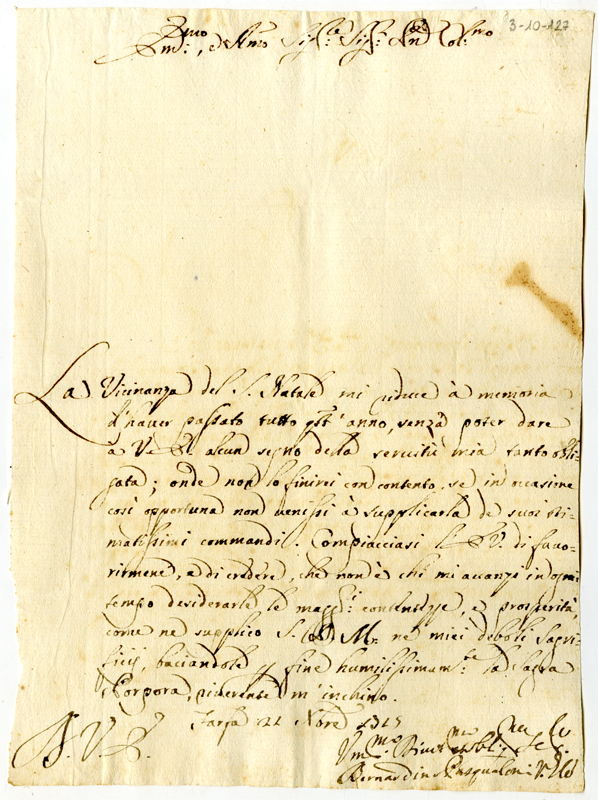 3-10-127
Em:mo, e Rmo Sigre Sigr Pne Colmo
La Vicinanza del S. Natale mi riduce à memoria
d'haver passato tutto qsto anno, senza poter dare
à V. E. alcun segno della servitù mia tanto obli-
gata; onde non lo finirei con contento, se in occasione
così opportuna non venissi à supplicarla de suoi sti-
matissimi commandi. Compiacciasi l'E. V. di favo-
rirmene, e di credere, che non è chi mi avanzi in ogni
tempo desiderarle le maggri contentezze, e prosperità,
come ne supplico S. D. M. ne miei deboli sagri-
ficij, baciandole per fine humilissimamte la Sagra
Porpora, riverente m'inchino.
Farfa 22 Nore
D. V. E.
Vmmo Devmo Oblmo
Bernardino Pasqualoni